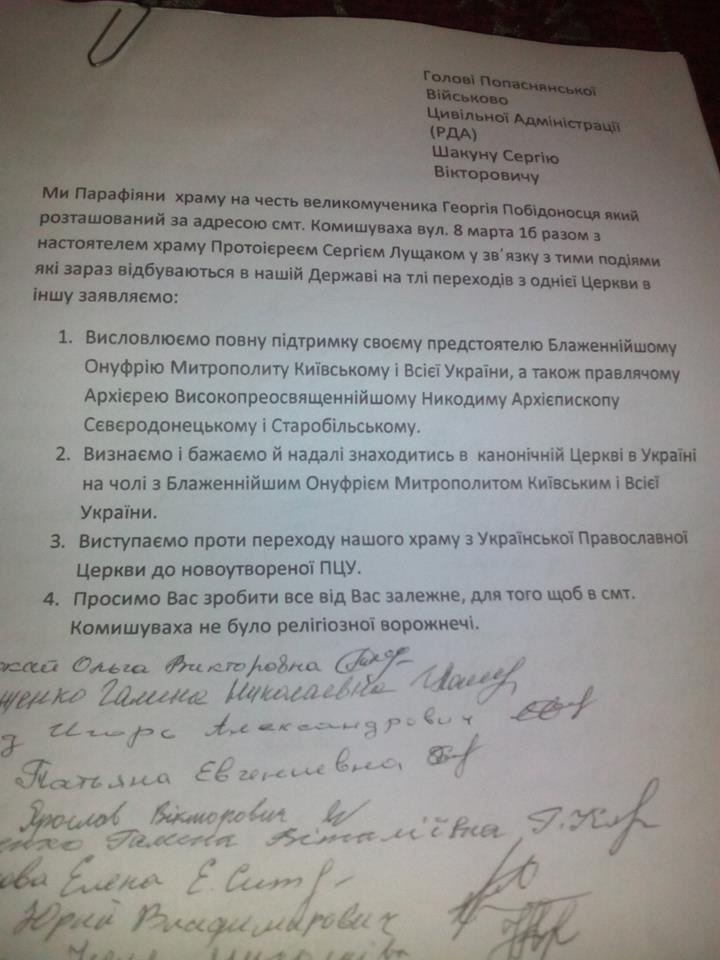 Голові Попаснянської
Військово
Цивільної Адміністрації
(РДА)
Шакуну Сергію
Вікторовичу
Ми Парафіяни храму на честь великомученика Георгія Побідоносця який
розташований за адресою смт. Комишуваха вул. 8 марта 1б разом з
настоятелем храму Протоієреєм Сергієм Лущаком у зв´язку з тими подіями
які зараз відбуваються в нашій Державі на тлі переходів з однієї Церкви в
іншу заявляємо:
1. Висловлюємо повну підтримку своєму предстоятелю Блаженнійшому
Онуфрію Митрополиту Київському і Всієї України, а також правлячому
Архієрею Високопреосвященнійшому Никодиму Архієпископу
Сєвєродонецькому і Старобільському.
2. Визнаємо і бажаємо й надалі знаходитись в канонічній Церкві в Україні
на чолі з Блаженнійшим Онуфрієм Митрополитом Київським і Всієї
України.
3. Виступаємо проти переходу нашого храму з Української Православної
Церкви до новоутвореної ПЦУ.
4. Просимо Вас зробити все від Вас залежне, для того щоб в смт.
Комишуваха не було релігіозної ворожнечі.
Ольга Викторовна
Галина Николаевна
Игорь Александрович
Татьяна Евгениевна
Ярослов Вікторович
Галина Віталіївна
Елена Е.
Юрий Владимирович